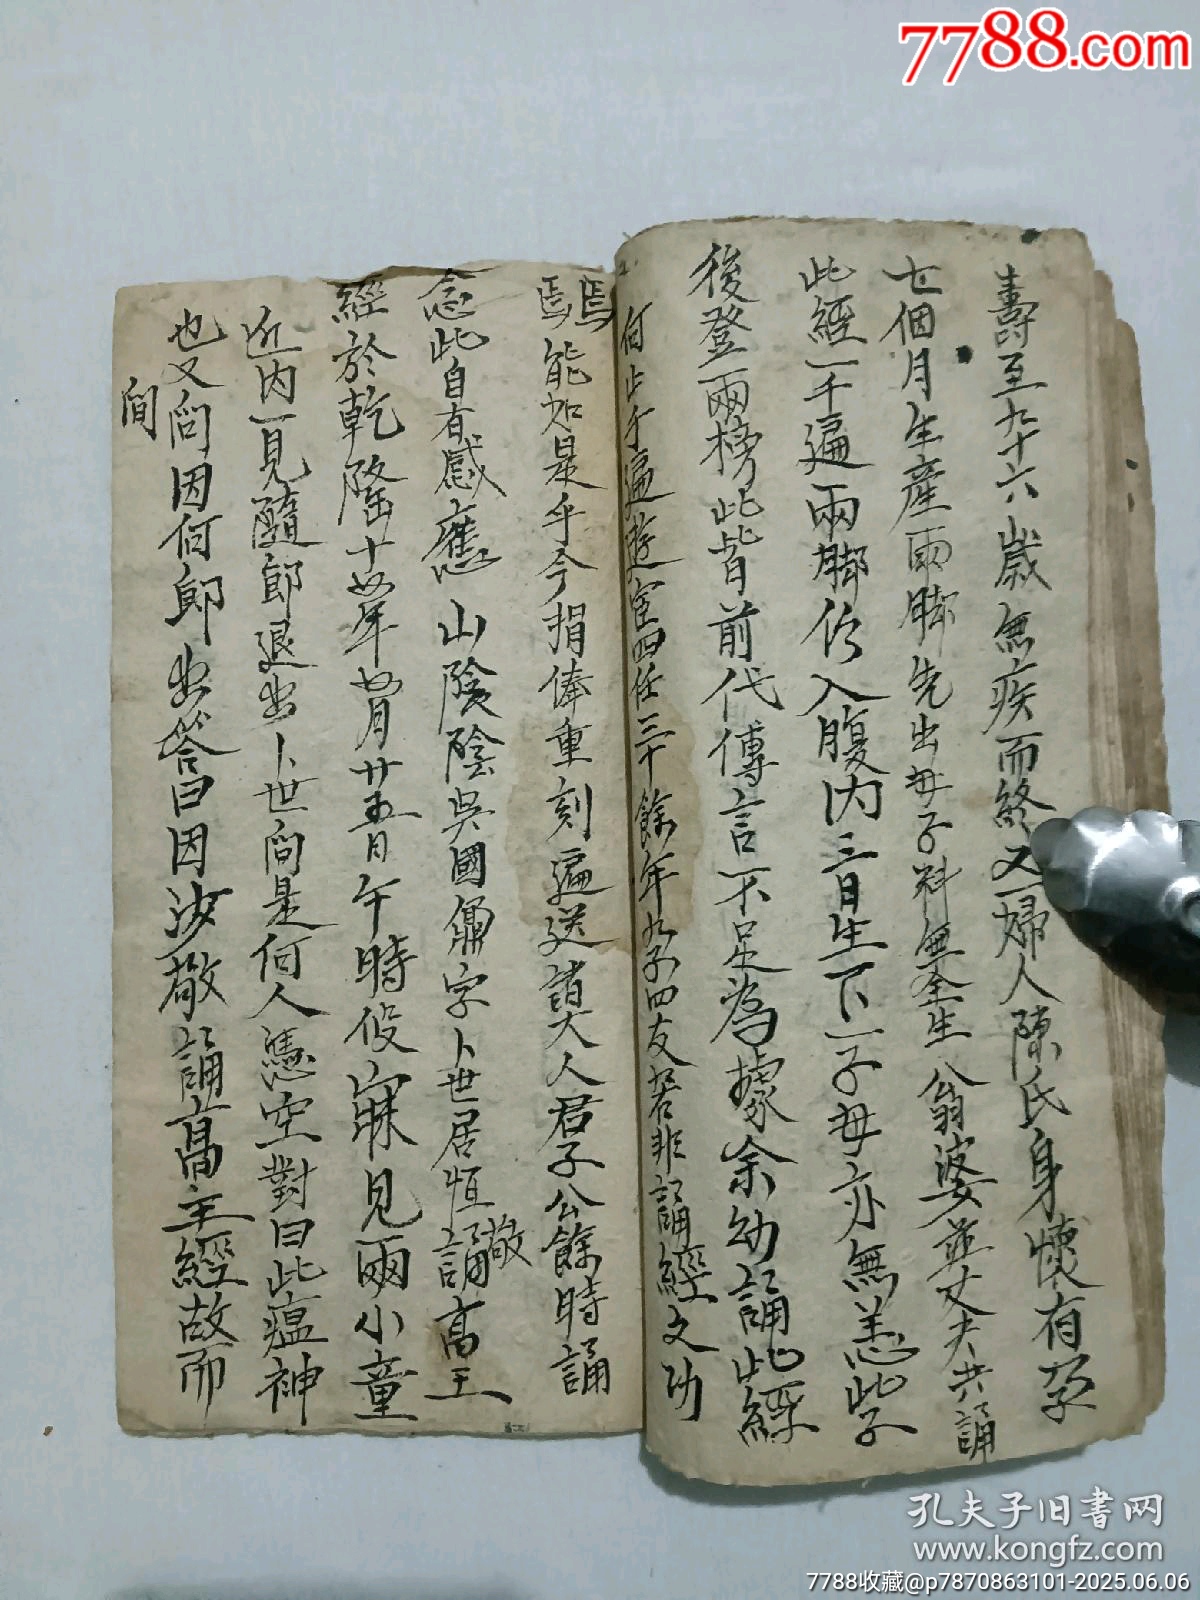 7788.com
壽至九十六歲無疾而終又一婦人陳氏身懷有孕
七個月生産兩脚先出母子料無全生翁婆並丈夫共誦
此經一千遍兩脚仍入腹内三日生下一子母亦無恙此子
後登兩榜此皆前代傳言不足為據余幼誦此經
何止千遍遊宦四任三十餘年九子四友若非誦經之功
焉能如是乎今捐俸重刻遍送諸大人君子公餘時誦
念此自有感應山陰陰吳國鼐字卜世居恒敬誦高王
經於乾隆十年月廿五日午時假寐見兩小童
近内一見隨即退出卜世問是何人憑空對曰此瘟神
也又問因何即出答曰因汝敬誦高王經故而
間
孔夫子旧书网
www.kongfz.com
7788收藏@p7870863101-2025.06.06